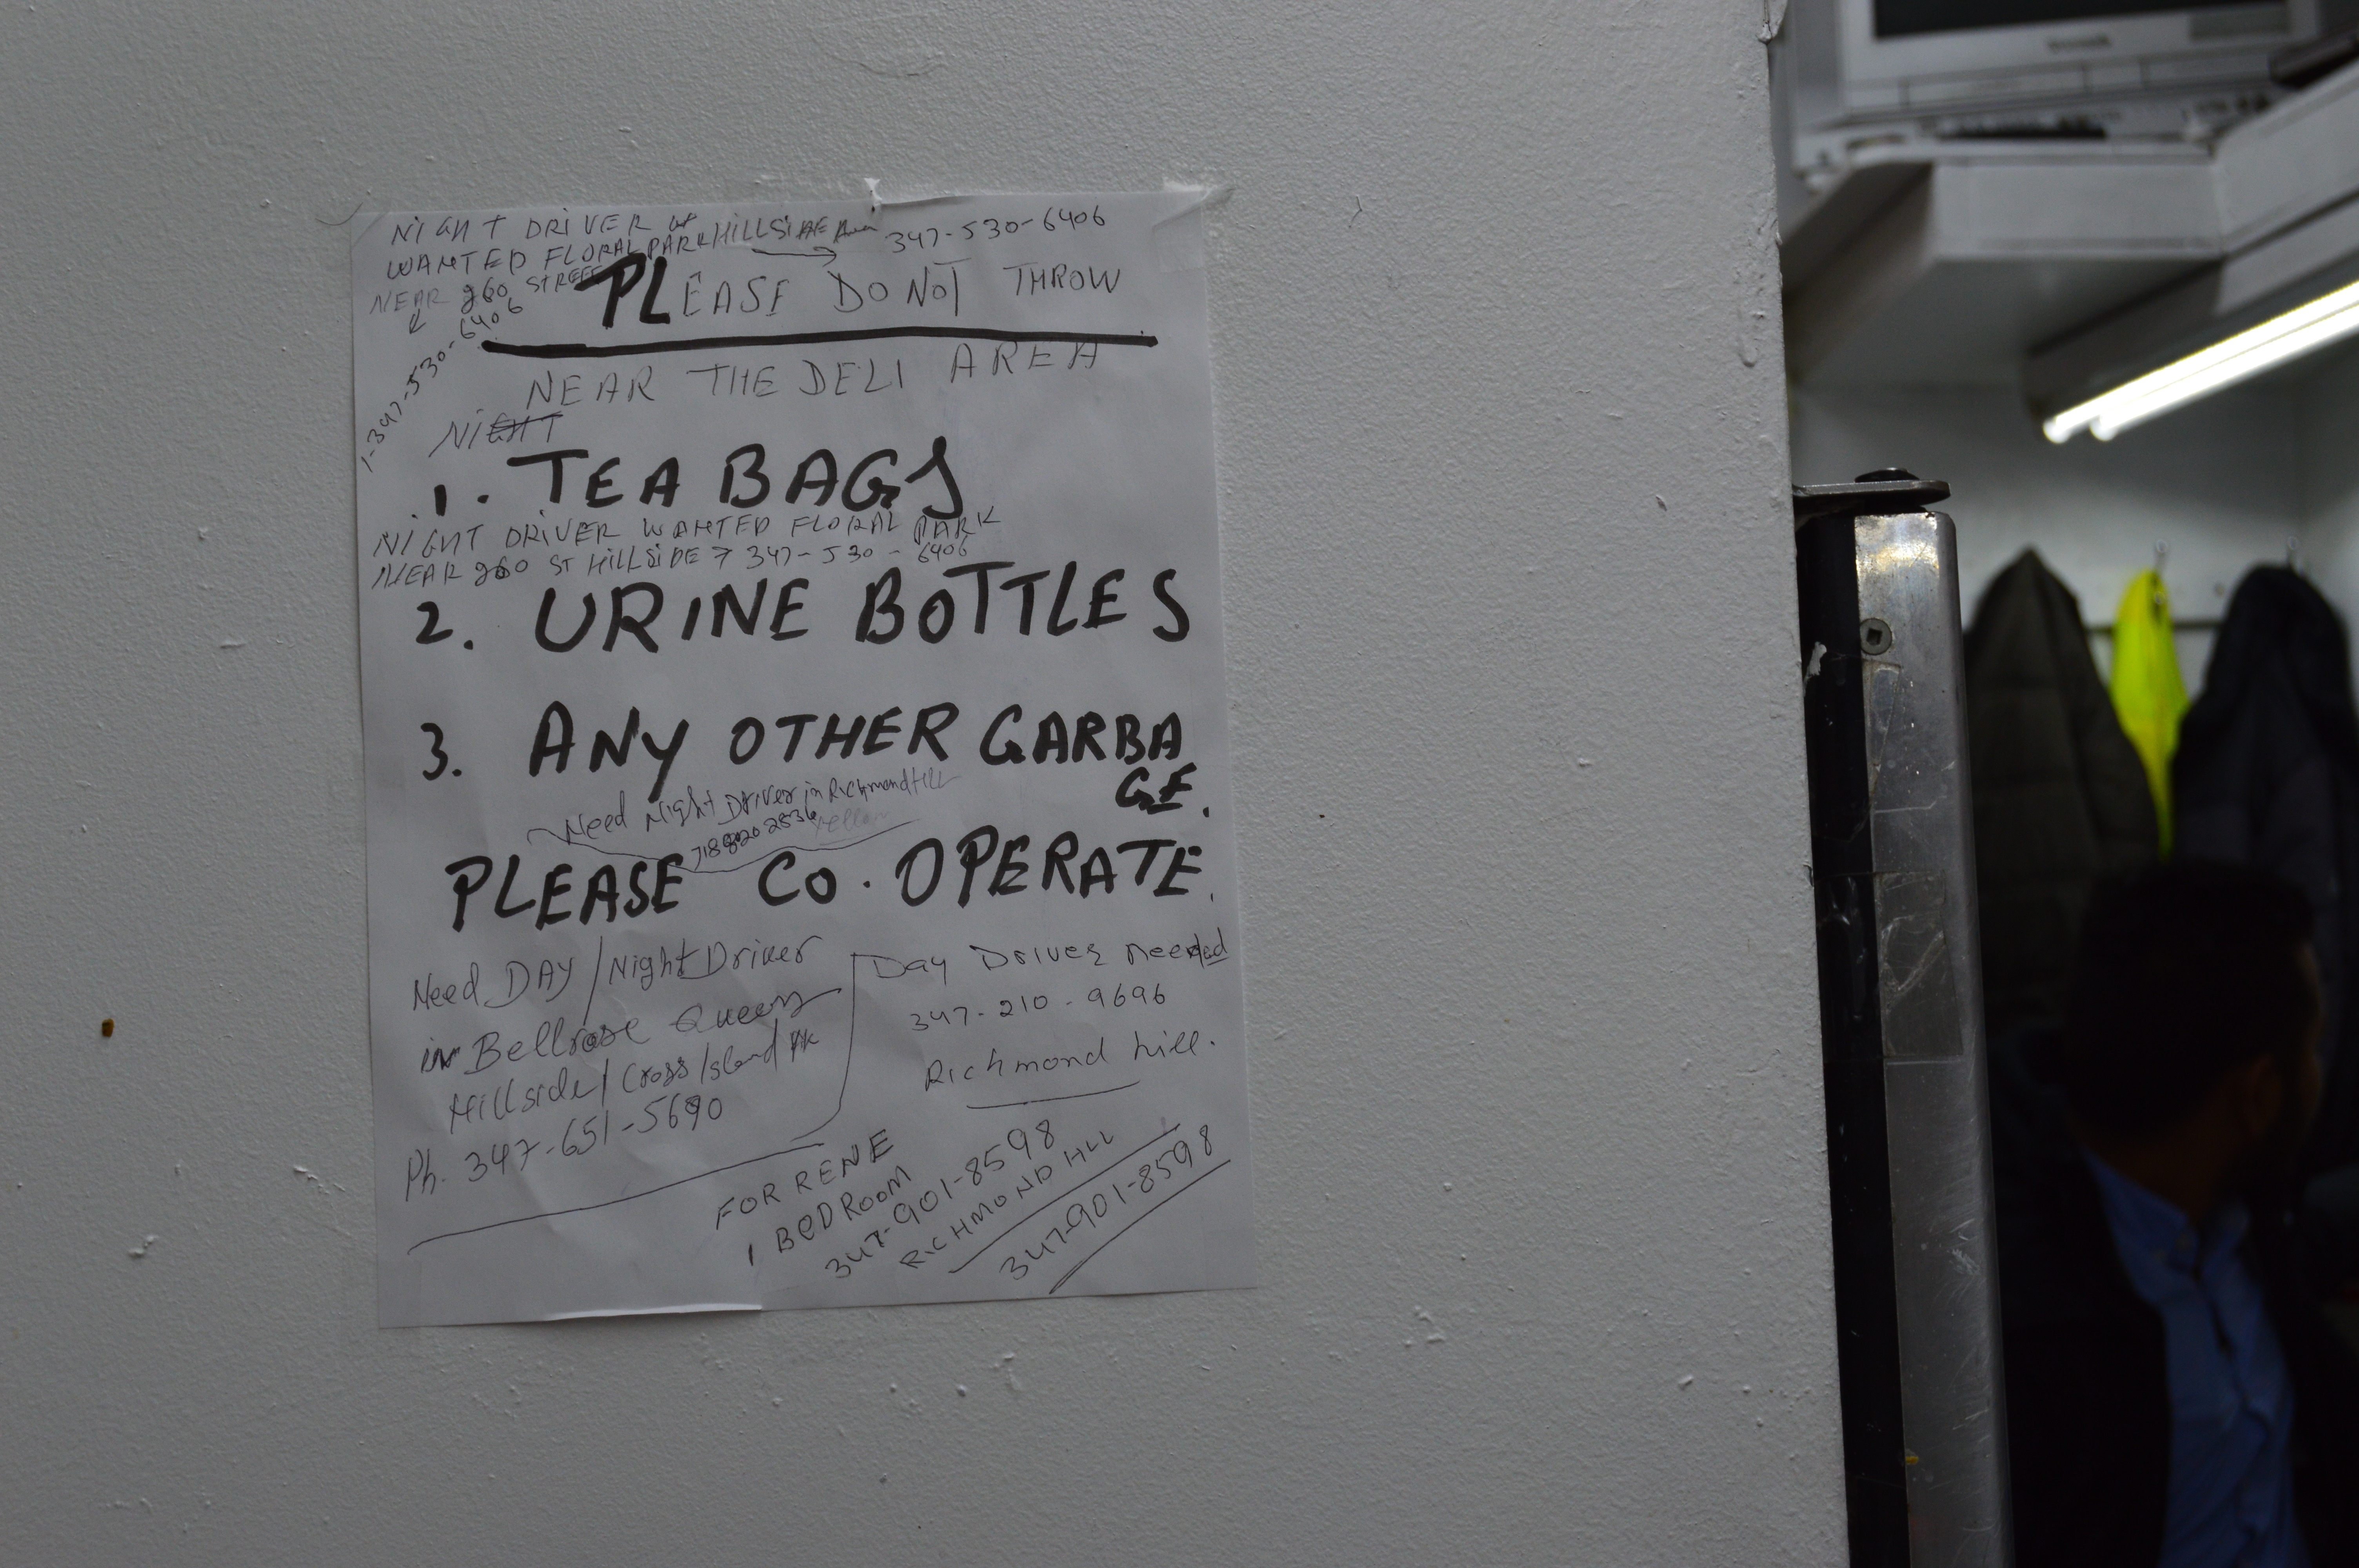 NIGHT DRIVER
WANTED FLORAL PARK HILLSIDE Area 347-530-6406
NEAR 260 STREET
1-347-530-6406
PLEASE DO NOT THROW
NEAR THE DELI AREA
NIGHT
1. TEA BAGS
NIGHT DRIVER WANTED FLORAL PARK
NEAR 260 ST HILLSIDE 347-530-6406
2. URINE BOTTLES
3. ANY OTHER GARBA
GE.
Need Night Driver in Richmond Hill
yellow
PLEASE CO.OPERATE.
Need DAY/Night Driver
in Bellrose Queens
Hillside/Cross Island Pk
Ph. 347-651-5690
Day Driver needed
347-210-9696
Richmond hill.
FOR RENE
1 BEDROOM
347-901-8598
RICHMOND HLL
347-901-8598